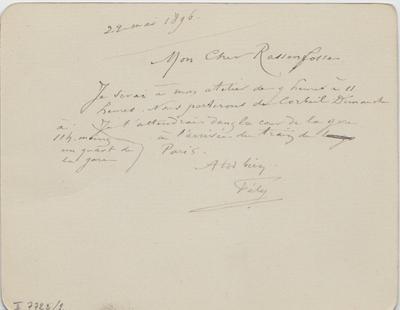 22 mai 1896.
Mon Cher Rassenfosse
Je serai à mon atelier de 9 heures à 11
heures. Nous partirons de Corbeil Dimanche
Je t'attendrai dans la cour de la gare
à
11h. moins
un quart de
la gare
à l'arrivée du train de
Paris.
A toi bien
Fély
I 7728/9